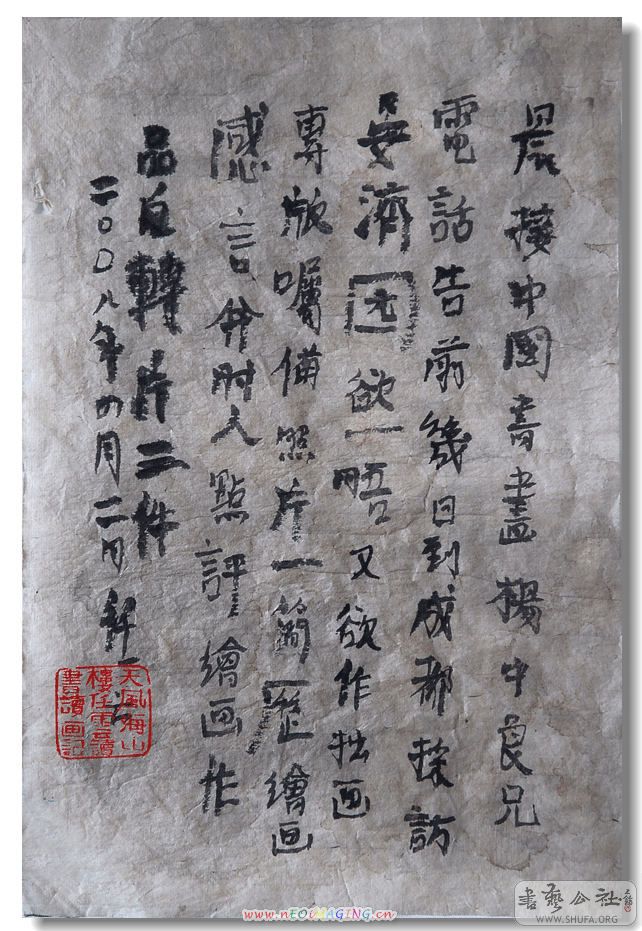 晨接中國書畫楊中良兄
電話告前幾日到成都採訪
晏濟元欲一晤又欲作拙画
專版囑備照片一簡歷繪画
感言并附人點評繪画作
品反轉片二件
二〇〇八年四月二日
天風海山
樓
書讀画記
書藝公社
WWW.SHUFA.ORG
www.nEOIMAGING.cn